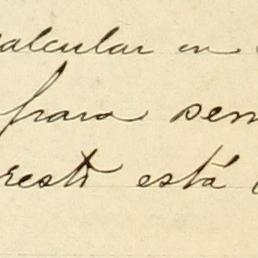 calcular en
para sem
resti está